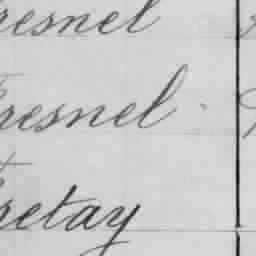 resnel
Fresnel
Fretay